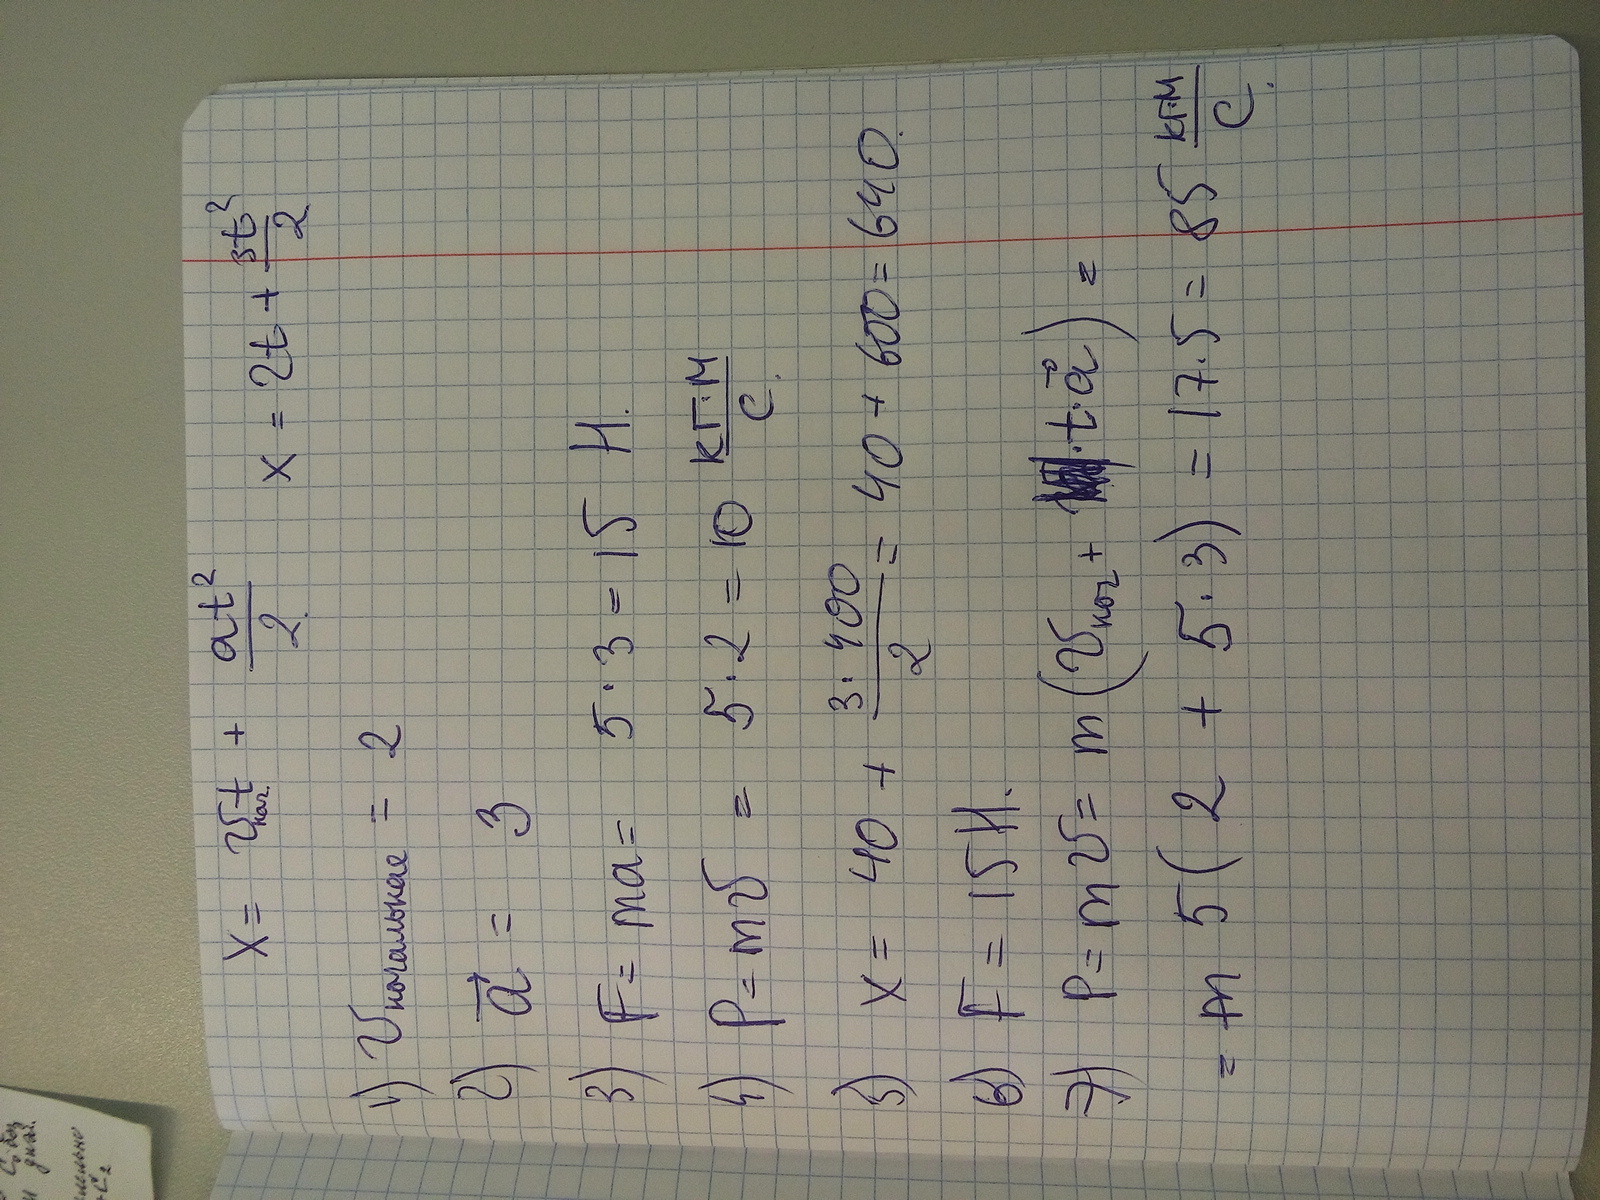 x = v нач. t + at²/2. x = 2t + 3t²/2
1) v начальная = 2
2) a⃗ = 3
3) F = ma = 5·3 = 15 Н.
4) P = mv = 5·2 = 10 кг·м/с.
5) x = 40 + 3·400/2 = 40 + 600 = 640.
6) F = 15 Н.
7) P = mv = m (v нач + ·t·a⃗) =
= m 5(2 + 5·3) = 17·5 = 85 кг·м/с.
дная.